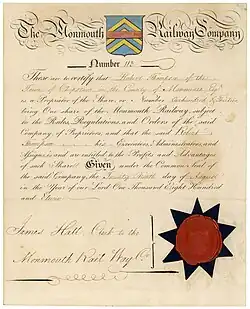 The Monmouth Railway Company
Number 112
These are to certify that Robert Thompson of the
Town of Chepstow in the County of Monmouth Esqr
is a Proprietor of the Share, or Number One hundred & twelve
being One share of the Monmouth Railway, subject
to the Rules, Regulations, and Orders of the said
Company of Proprietors, and that the said Robert
Thompson his Executors, Administrators, and
Assigns, is and are entitled to the Profits and Advantages
of such Share. Given under the Common Seal of
the said Company, the Twenty day of August
in the Year of our Lord One Thousand Eight Hundred
and
James Hall Clerk to the
Monmouth Railwy Co